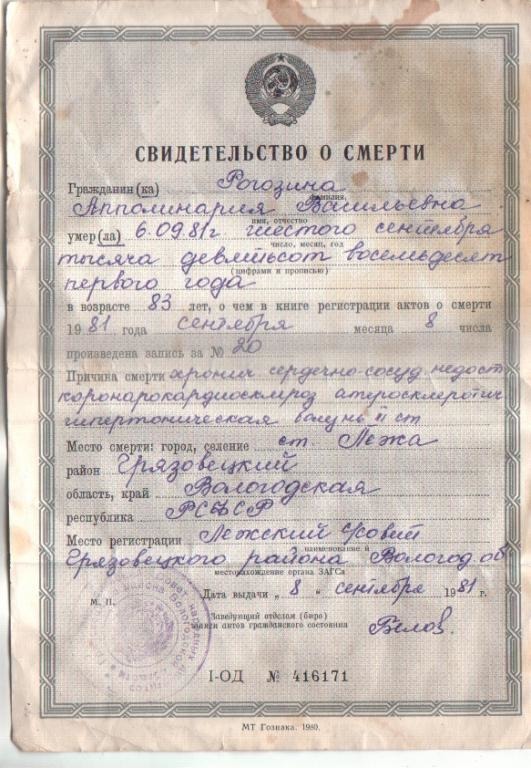 СВИДЕТЕЛЬСТВО О СМЕРТИ
Гражданин (ка) Рогозина
фамилия,
Апполинария Васильевна
имя, отчество
умер (ла) 6.09.81г шестого сентября
число, месяц, год
тысяча девятьсот восемьдесят
(цифрами и прописью)
первого года
в возрасте 83 лет, о чем в книге регистрации актов о смерти
1981 года сентября месяца 8 числа
произведена запись за № 20
Причина смерти хронич сердечно-сосуд. недост
коронарокардиосклероз атеросклеротич
гипертоническая II ст
Место смерти: город, селение ст. Лежа
район Грязовецкий
область, край Вологодская
республика РСФСР
Место регистрации Лежский с/совет
наименование и
Грязовецкого района Вологод об
местонахождение органа ЗАГСа
Дата выдачи „8" сентября 1981 г.
М. П.
Заведующий отделом (бюро)
записи актов гражданского состояния
Белов
I-ОД № 416171
МТ Гознака. 1980.